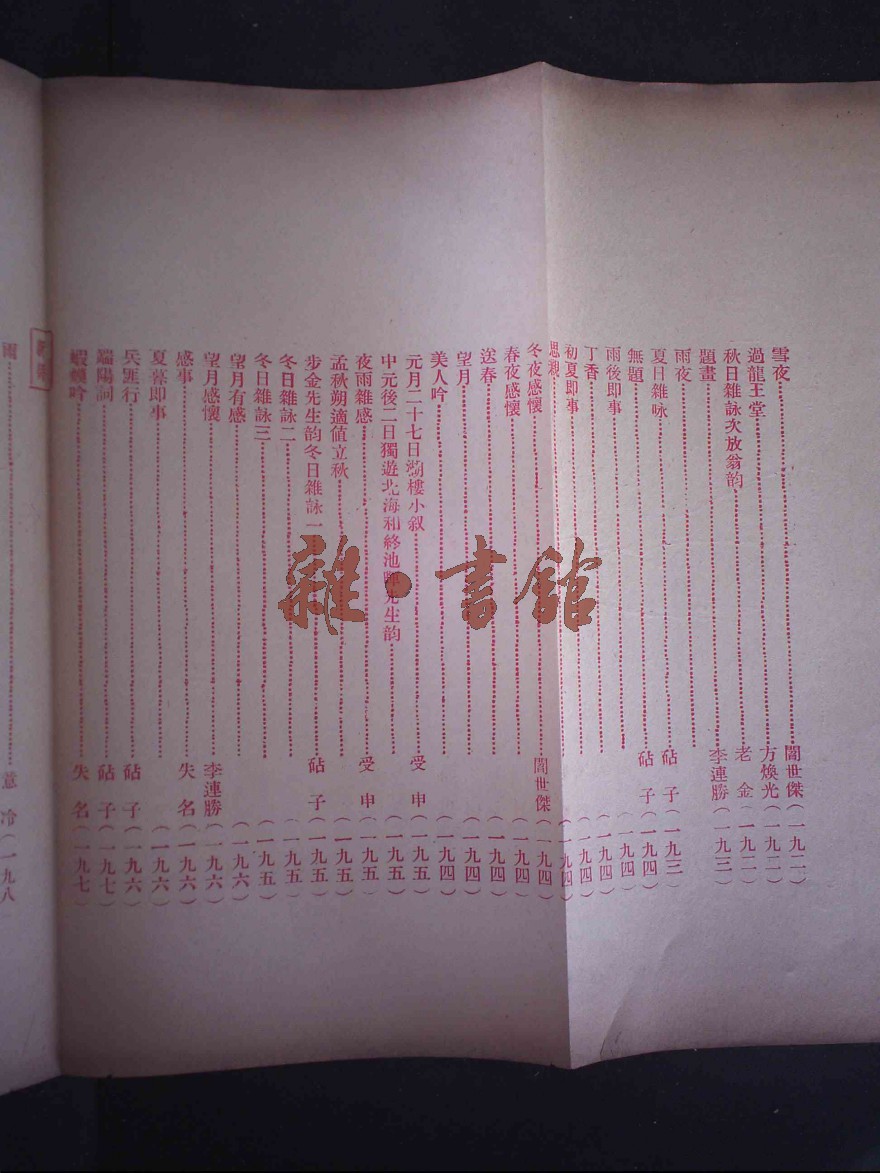 雪夜……闇世傑(一九二)
過龍王堂……方煥光(一九二)
秋日雜詠次放翁韵……老 金(一九二)
題畫……李連勝(一九三)
雨夜……
夏日雜咏……砧 子(一九三)
無題……砧 子(一九四)
雨後即事……(一九四)
丁香……(一九四)
初夏即事……(一九四)
思親……(一九四)
冬夜感懷……闇世傑(一九四)
春夜感懷……(一九四)
送春……(一九四)
望月……(一九四)
美人吟……(一九四)
元月二十七日湖樓小叙……受 申(一九五)
中元後二日獨遊北海和終池先生韵……(一九五)
夜雨雜感……受 申(一九五)
孟秋朔適值立秋……(一九五)
步金先生韵冬日雜詠一……砧 子(一九五)
冬日雜詠二……(一九五)
冬日雜詠三……(一九五)
望月有感……(一九六)
望月感懷……李連勝(一九六)
感事……失 名(一九六)
夏暮即事……(一九六)
兵匪行……砧 子(一九六)
端陽詞……砧 子(一九七)
蝦蟆吟……失 名(一九七)
雨……薏 冷(一九八
雜·書館